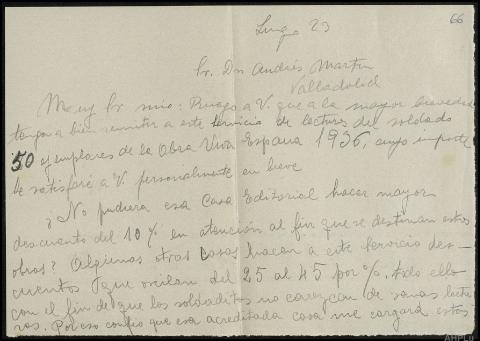 66
Lugo 23
Sr. Dn Andrés Martin
Valladolid
Muy Sr mio: Ruego a V. que a la mayor brevedad
tenga a bien remitir a este servicio de lectura del soldado
50 ejemplares de la Obra Viva España 1936, cuyo importe
le satisfaré a V. personalmente en breve
¿No pudiera esa Casa Editorial hacer mayor
descuento del 10% en atención al fin que se destinan estas
obras? Algunas otras Casas hacen a este servicio des-
cuentos que oscilan del 25 al 45 por %. todo ello
con el fin de que los soldaditos no carezcan de sanas lectu
ras. Por eso confio que esa acreditada casa me cargará estos
AHPLu